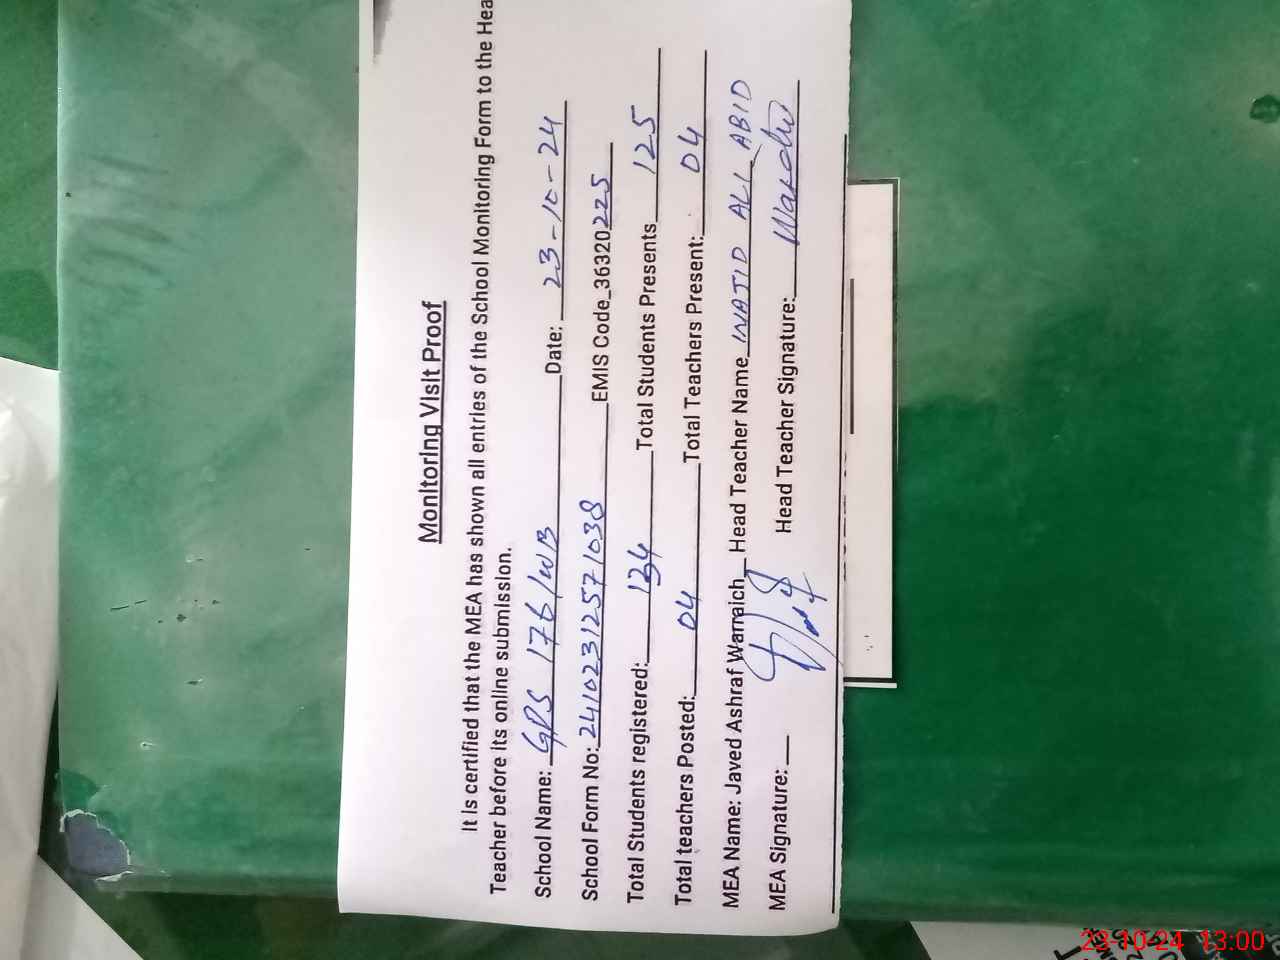 Monitoring Visit Proof
It is certified that the MEA has shown all entries of the School Monitoring Form to the Hea
Teacher before its online submission.
School Name: GPS 176/WB Date: 23-10-24
School Form No: 24102312571038 EMIS Code_36320225
Total Students registered: 134 Total Students Presents 125
Total teachers Posted: 04 Total Teachers Present: 04
MEA Name: Javed Ashraf Warraich Head Teacher Name WAJID ALI ABID
MEA Signature: Head Teacher Signature:
23-10-24 13:00